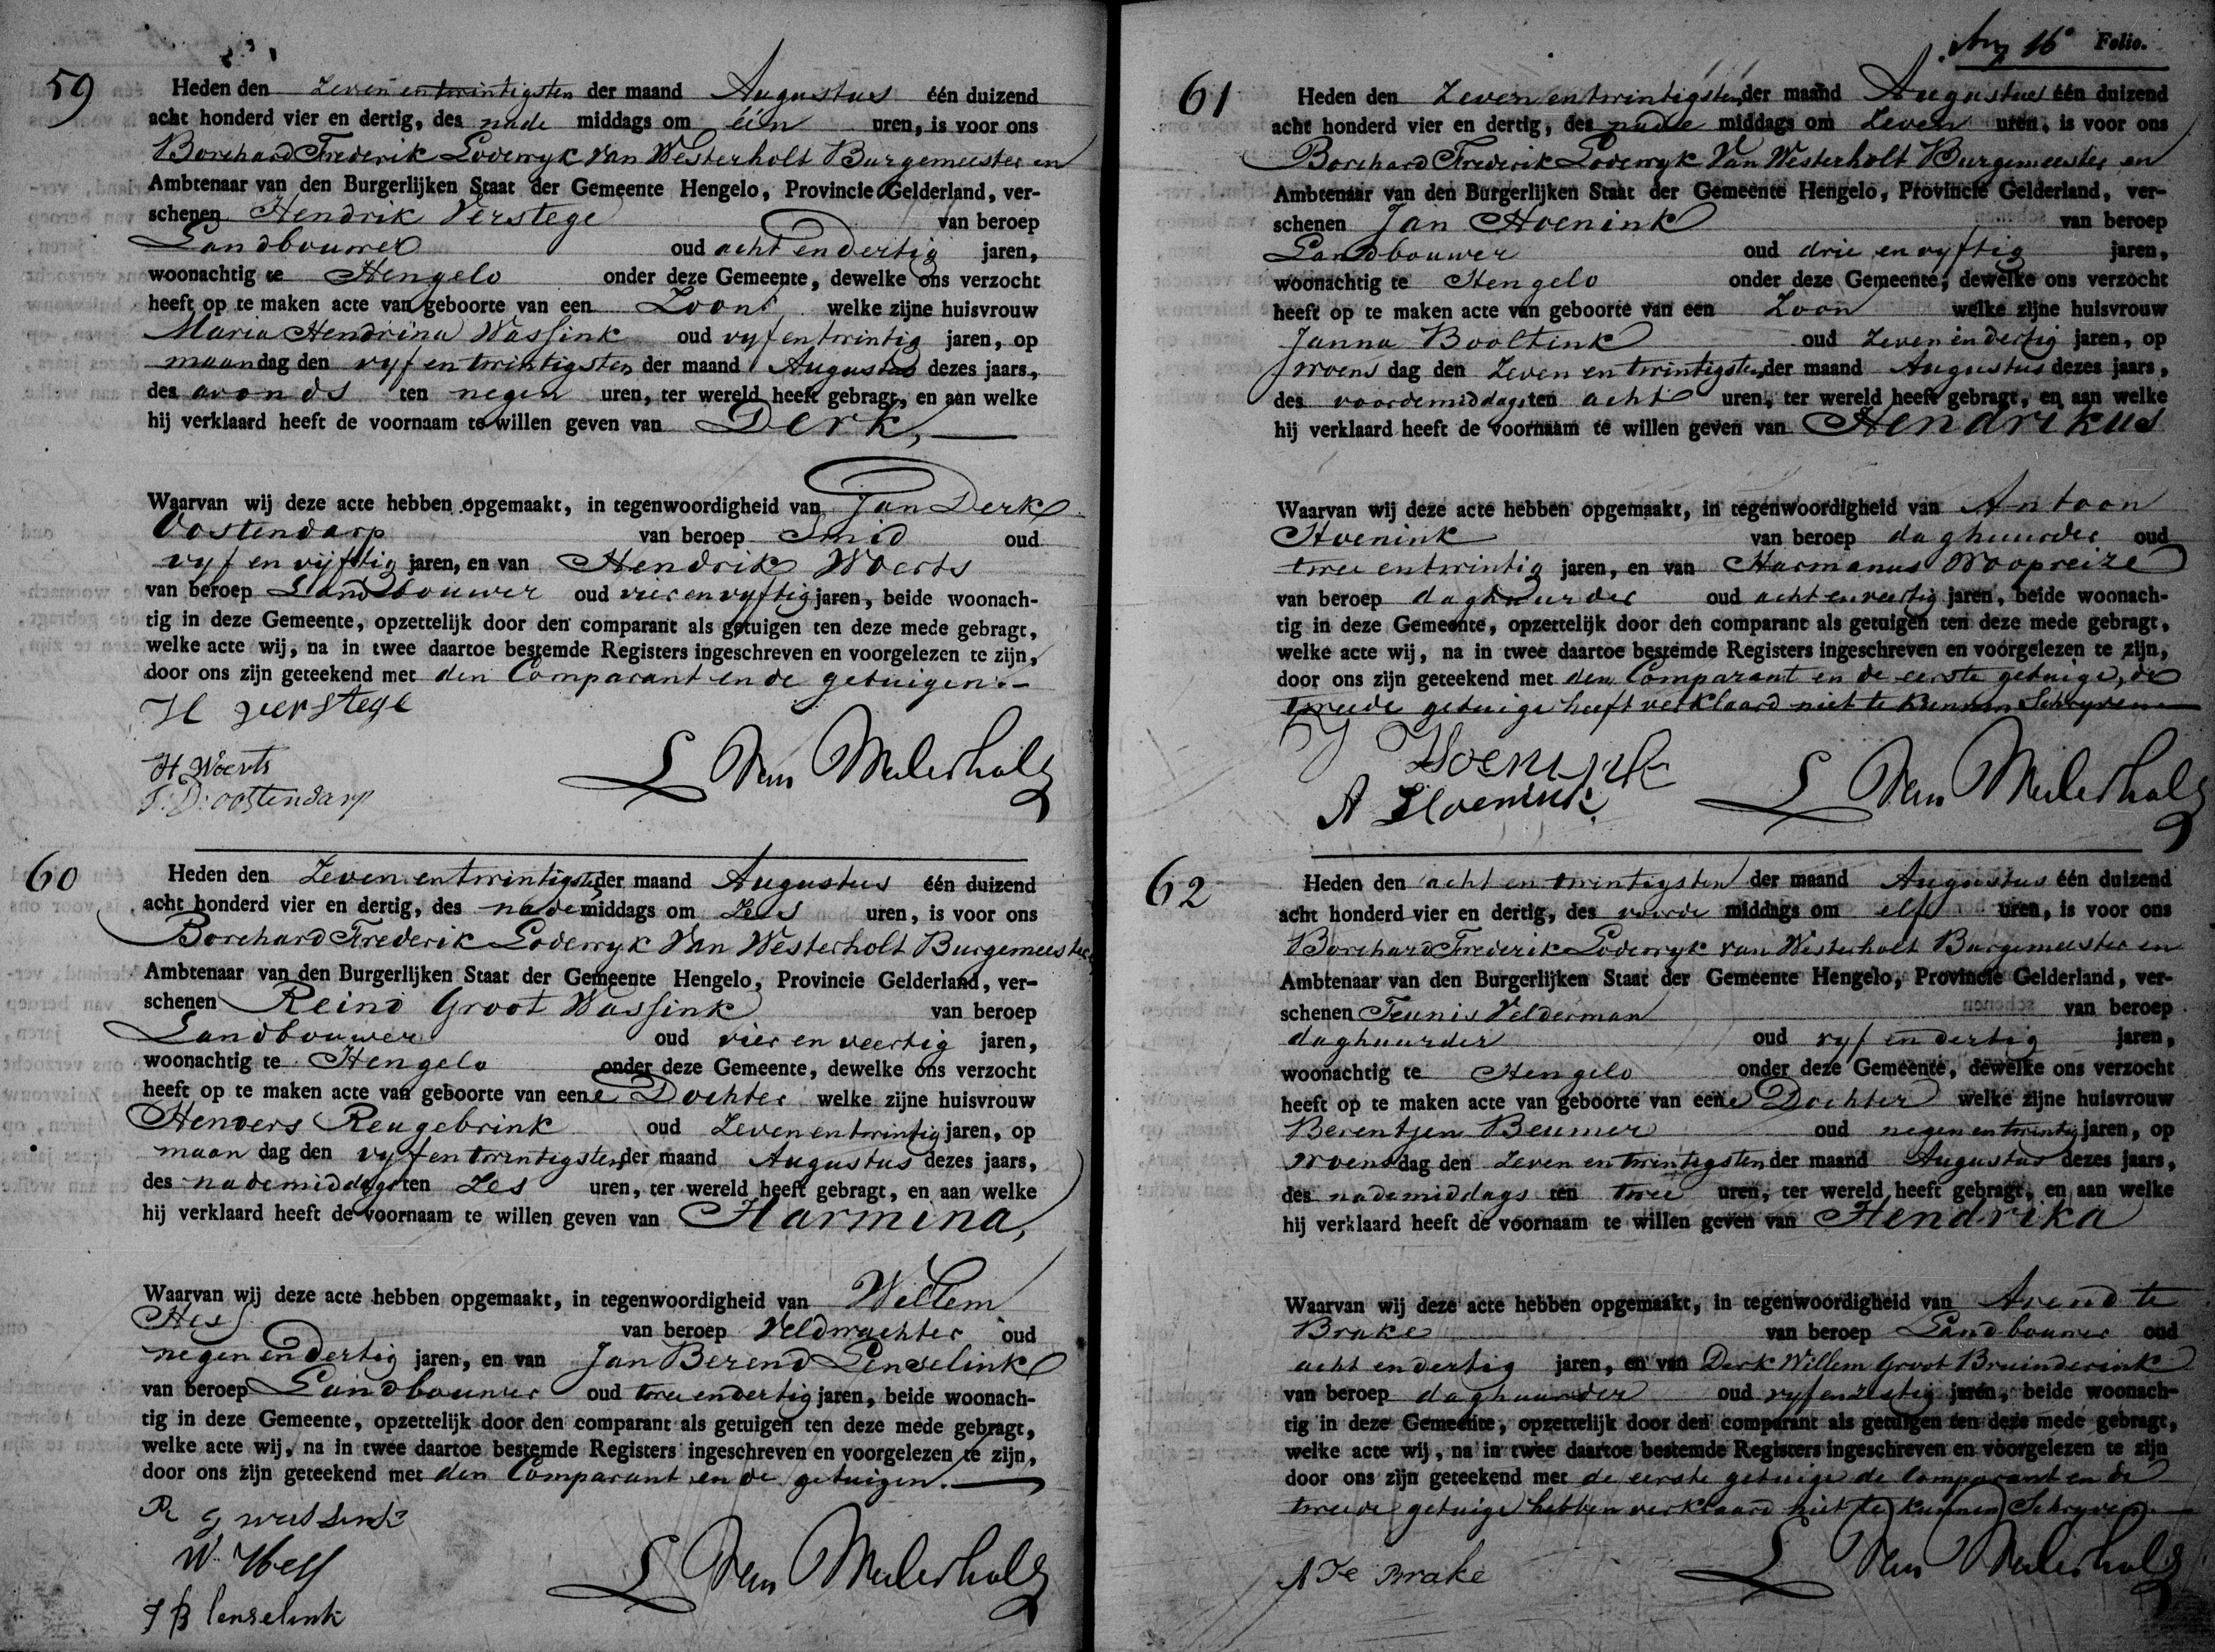 59
Heden den Zeven en twintigsten der maand Augustus één duizend
acht honderd vier en dertig, des nade middags om één uren, is voor ons
Borchard Frederik Lodewyk Van Westerholt Burgemeester en
Ambtenaar van den Burgerlijken Staat der Gemeente Hengelo, Provincie Gelderland, ver-
schenen Hendrik Verstege van beroep
Landbouwer oud acht en dertig jaren,
woonachtig te Hengelo onder deze Gemeente, dewelke ons verzocht
heeft op te maken acte van geboorte van een Zoon welke zijne huisvrouw
Maria Hendrina Wassink oud vyf en twintig jaren, op
maandag den vyf en twintigsten der maand Augustus dezes jaars,
des avonds ten negen uren, ter wereld heeft gebragt, en aan welke
hij verklaard heeft de voornaam te willen geven van Derk,
Waarvan wij deze acte hebben opgemaakt, in tegenwoordigheid van Jan Derk
Oostendarp van beroep Smid oud
vyf en vijftig jaren, en van Hendrik Woerts
van beroep Landbouwer oud vier en vyftig jaren, beide woonach-
tig in deze Gemeente, opzettelijk door den comparant als getuigen ten deze mede gebragt,
welke acte wij, na in twee daartoe bestemde Registers ingeschreven en voorgelezen te zijn,
door ons zijn geteekend met den Comparant en de getuigen.
H verstege
H Woerts
J. D. oostendarp
L Van Westerholt
60
Heden den Zeven en twintigsten der maand Augustus één duizend
acht honderd vier en dertig, des nade middags om Zes uren, is voor ons
Borchard Frederik Lodewyk Van Westerholt Burgemeester en
Ambtenaar van den Burgerlijken Staat der Gemeente Hengelo, Provincie Gelderland, ver-
schenen Reind Groot Wassink van beroep
Landbouwer oud vier en veertig jaren,
woonachtig te Hengelo onder deze Gemeente, dewelke ons verzocht
heeft op te maken acte van geboorte van eene Dochter welke zijne huisvrouw
Henders Reugebrink oud Zeven en twintig jaren, op
maan dag den vyf en twintigsten der maand Augustus dezes jaars,
des nademiddags ten Zes uren, ter wereld heeft gebragt, en aan welke
hij verklaard heeft de voornaam te willen geven van Harmina,
Waarvan wij deze acte hebben opgemaakt, in tegenwoordigheid van Willem
Hess van beroep Veldwachter oud
negen en dertig jaren, en van Jan Berend Lenselink
van beroep Landbouwer oud twee en dertig jaren, beide woonach-
tig in deze Gemeente, opzettelijk door den comparant als getuigen ten deze mede gebragt,
welke acte wij, na in twee daartoe bestemde Registers ingeschreven en voorgelezen te zijn,
door ons zijn geteekend met den Comparant en de getuigen.
R G wassink
W. Hess
J B lenselink
L Van Westerholt
16e Folio.
61
Heden den Zeven en twintigsten der maand Augustus één duizend
acht honderd vier en dertig, des nade middags om Zeven uren, is voor ons
Borchard Frederik Lodewyk Van Westerholt Burgemeester en
Ambtenaar van den Burgerlijken Staat der Gemeente Hengelo, Provincie Gelderland, ver-
schenen Jan Hoenink van beroep
Landbouwer oud drie en vyftig jaren,
woonachtig te Hengelo onder deze Gemeente, dewelke ons verzocht
heeft op te maken acte van geboorte van een Zoon welke zijne huisvrouw
Janna Booltink oud Zeven en dertig jaren, op
woens dag den Zeven en twintigsten der maand Augustus dezes jaars,
des voordemiddags ten acht uren, ter wereld heeft gebragt, en aan welke
hij verklaard heeft de voornaam te willen geven van Hendrikus
Waarvan wij deze acte hebben opgemaakt, in tegenwoordigheid van Antoon
Hoenink van beroep daghuurder oud
twee en twintig jaren, en van Harmanus Woopreize
van beroep daghuurder oud acht en veertig jaren, beide woonach-
tig in deze Gemeente, opzettelijk door den comparant als getuigen ten deze mede gebragt,
welke acte wij, na in twee daartoe bestemde Registers ingeschreven en voorgelezen te zijn,
door ons zijn geteekend met den Comparant en de eerste getuige, de
tweede getuige heeft verklaard niet te kunnen Schryven
J Hoenink
A Hoenink.
L Van Westerholt
62
Heden den acht en twintigsten der maand Augustus één duizend
acht honderd vier en dertig, des voorde middags om elf uren, is voor ons
Borchard Frederik Lodewyk van Westerholt Burgemeester en
Ambtenaar van den Burgerlijken Staat der Gemeente Hengelo, Provincie Gelderland, ver-
schenen Teunis Velderman van beroep
daghuurder oud vyf en dertig jaren,
woonachtig te Hengelo onder deze Gemeente, dewelke ons verzocht
heeft op te maken acte van geboorte van eene Dochter welke zijne huisvrouw
Berentjen Beumer oud negen en twintig jaren, op
woensdag den Zeven en twintigsten der maand Augustus dezes jaars,
des nademiddags ten twee uren, ter wereld heeft gebragt, en aan welke
hij verklaard heeft de voornaam te willen geven van Hendrika
Waarvan wij deze acte hebben opgemaakt, in tegenwoordigheid van Arend te
Brake van beroep Landbouwer oud
acht en dertig jaren, en van Derk Willem Groot Bruinderink
van beroep daghuurder oud vyf en zestig jaren, beide woonach-
tig in deze Gemeente, opzettelijk door den comparant als getuigen ten deze mede gebragt,
welke acte wij, na in twee daartoe bestemde Registers ingeschreven en voorgelezen te zijn
door ons zijn geteekend met de eerste getuige de Comparant en de
tweede getuige hebben verklaard niet te kunnen Schryven
A Te Brake
L Van Westerholt